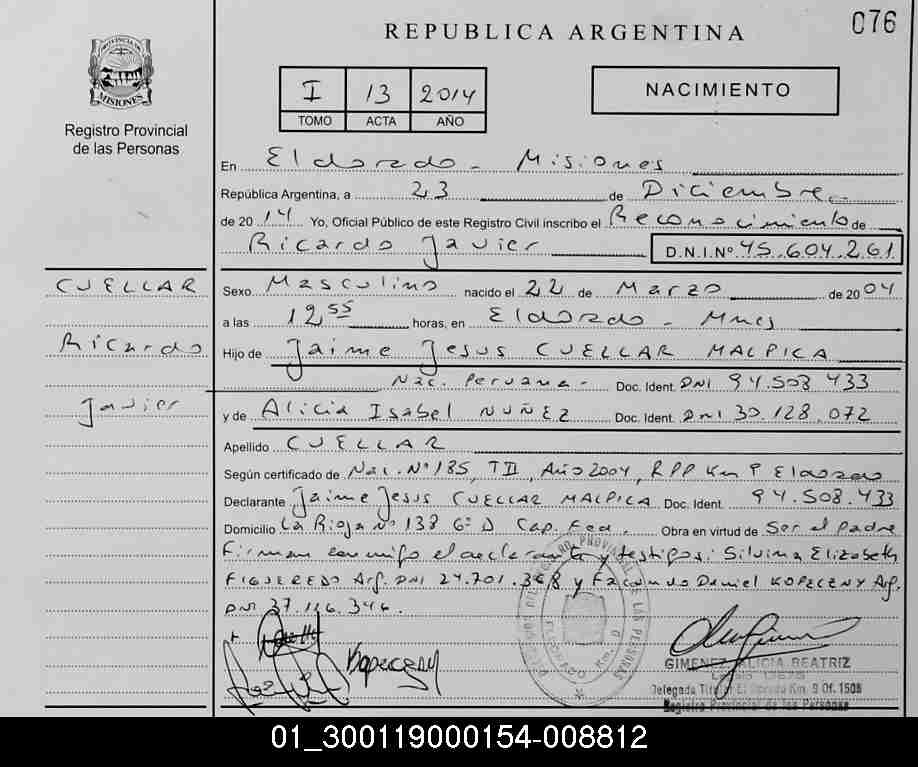 076
REPUBLICA ARGENTINA
PROVINCIA DE
MISIONES
Registro Provincial
de las Personas
I 13 2014
TOMO ACTA AÑO
NACIMIENTO
En Eldorado - Misiones
República Argentina, a 23 de Diciembre
de 2014 Yo, Oficial Público de este Registro Civil inscribo el Reconocimiento de
Ricardo Javier D.N.I.Nº 45.604.261
CUELLAR
Ricardo
Javier
Sexo Masculino nacido el 22 de Marzo de 2004
a las 12 55 horas, en Eldorado - Mnes
Hijo de Jaime Jesus CUELLAR MALPICA
Nac. Peruana - Doc. Ident. DNI 94.508.433
y de Alicia Isabel NUÑEZ Doc. Ident. DNI 30.128.072
Apellido CUELLAR
Según certificado de Nac. Nº 185, TII, Año 2004, RPP Km 9 Eldorado
Declarante Jaime Jesus CUELLAR MALPICA Doc. Ident. 94.508.433
Domicilio La Rioja Nº 138 6º D Cap. Fed. Obra en virtud de Ser el padre
Firman conmigo el declarante y testigos: Silvina Elizabeth
FIGUEREDO Arg. DNI 24.701.368 y Facundo Daniel KOPECENY Arg.
DNI 37.116.346.
Kopeceny
REGISTRO PROVINCIAL DE LAS PERSONAS
ELDORADO Km. 9
GIMENEZ ALICIA BEATRIZ
Delegada Titular Eldorado Km. 9 Of. 1508
Registro Provincial de las Personas
01_300119000154-008812